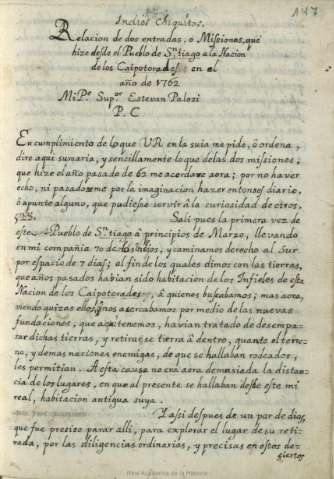 147
Indios Chiquitos.
Relacion de dos entradas, ò Missiones, que
hize desde el Pueblo de S.tiago a la Nacion
de los Caipotorades en el
año de 1762
Mi P.e Sup.or Estevan Palozi
P. C
En cumplimiento de lo que V R en la suia me pide, ò ordena,
dire aqui sumaria, y sencillamente lo que de las dos missiones,
que hize el año pasado de 62 me acordare aora; por no haver
echo, ni pasadome por la imaginacion haver entonces diario,
ò apunte alguno, que pudiesse servir à la curiosidad de otros.
Sali pues la primera vez de
este Pueblo de S.tiago à principios de Marzo, llevando
en mi compañia 70 Indios, y caminamos derecho al Sur
por espazio de 7 dias; al fin de los quales dimos con las tierras,
que años pasados habian sido habitacion de los Infieles de esta
Nacion de los Caipotorades, à quienes buscabamos; mas aora,
viendo quizas ellos, que nos acercabamos por medio de las nuevas
fundaciones, que aqui tenemos, havian tratado de desempa-
rar dichas tierras, y retirarse tierra à dentro, quanto el terre-
no, y demas naciones enemigas, de que se hallaban rodeados,
les permitian. A esta causa no era aora demasiada la distan-
cia de los lugares, en que al presente se hallaban desde este mi
real, habitacion antigua suya.
Passi despues de un par de dias,
que fue preciso parar alli, para explorar el lugar de su reti-
rada, por las diligencias ordinarias, y precisas en estos de-
siertos
Real Academia de la Historia